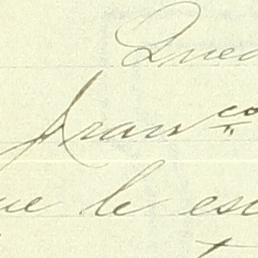 Qued
Franco
ue le es